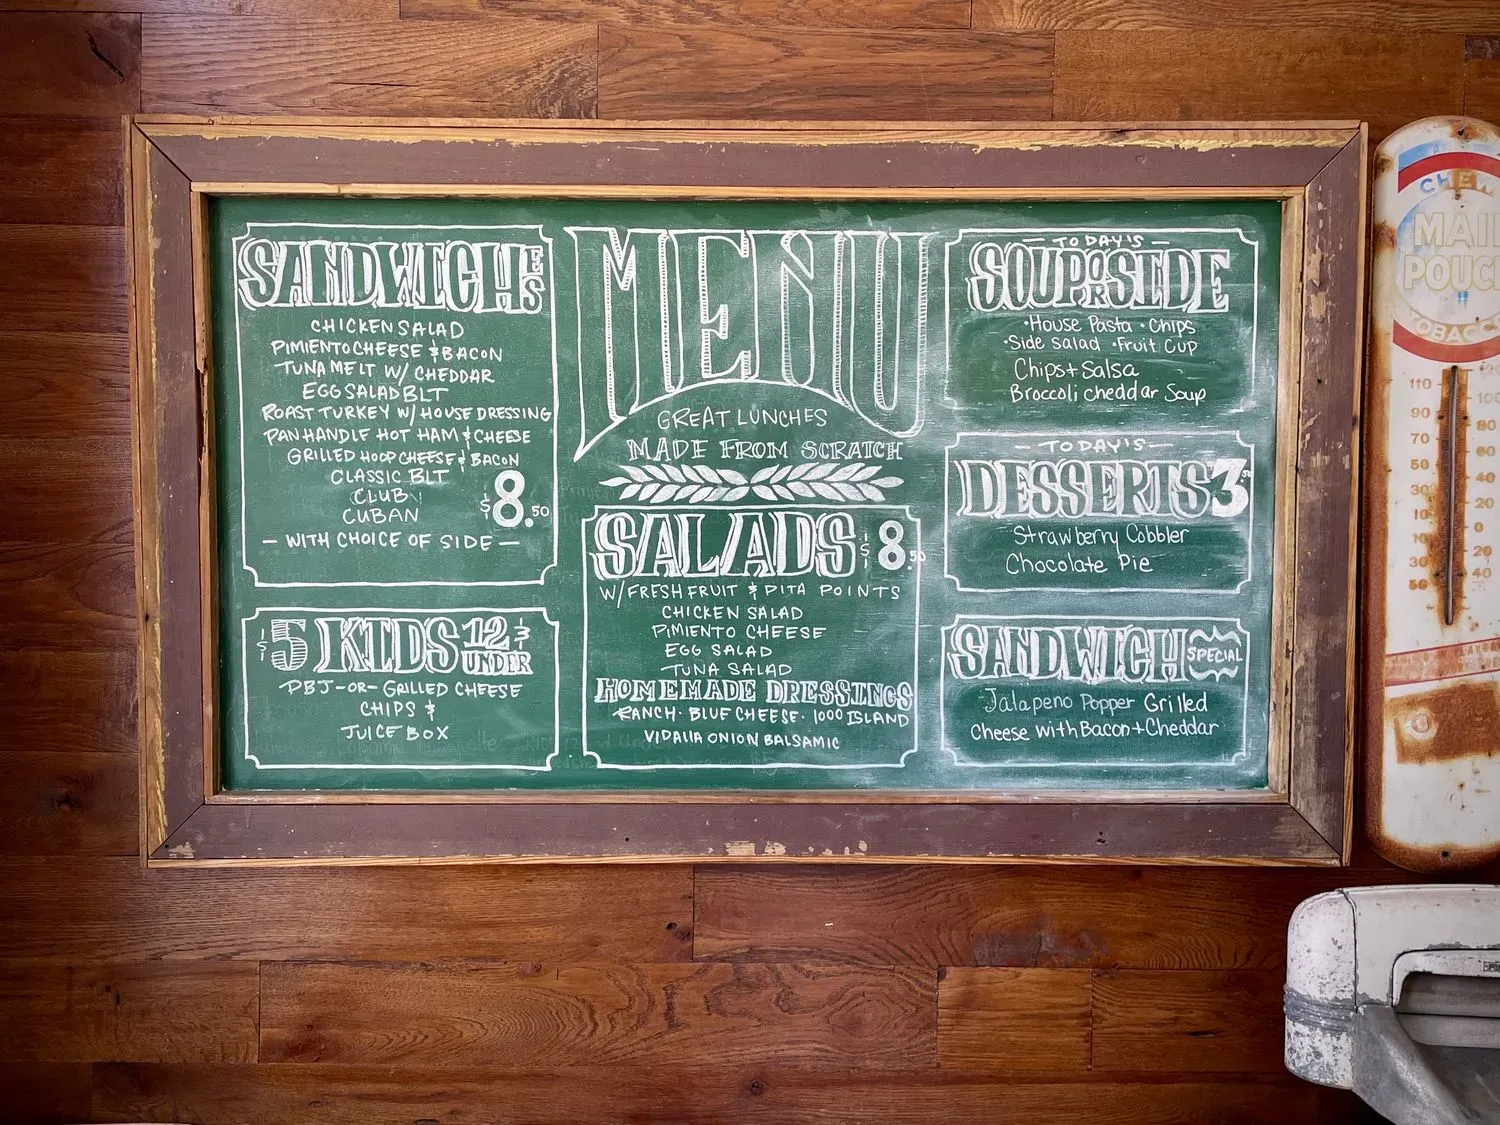 SANDWICHES
CHICKEN SALAD
PIMIENTO CHEESE & BACON
TUNA MELT W/ CHEDDAR
EGG SALAD BLT
ROAST TURKEY W/ HOUSE DRESSING
PANHANDLE HOT HAM & CHEESE
GRILLED HOOP CHEESE & BACON
CLASSIC BLT
CLUB
CUBAN
$8.50
— WITH CHOICE OF SIDE —
$5 KIDS 12 & UNDER
PBJ -OR- GRILLED CHEESE
CHIPS &
JUICE BOX
MENU
GREAT LUNCHES
MADE FROM SCRATCH
SALADS $8.50
W/ FRESH FRUIT & PITA POINTS
CHICKEN SALAD
PIMIENTO CHEESE
EGG SALAD
TUNA SALAD
HOMEMADE DRESSINGS
RANCH · BLUE CHEESE · 1000 ISLAND
VIDALIA ONION BALSAMIC
— TODAY'S —
SOUP OR SIDE
·House Pasta ·Chips
·Side salad ·Fruit Cup
Chips + Salsa
Broccoli cheddar Soup
— TODAY'S —
DESSERTS 3.50
Strawberry Cobbler
Chocolate Pie
SANDWICH SPECIAL
Jalapeno Popper Grilled
Cheese with Bacon + Cheddar
CHEW
MAIL
POUCH
TOBACCO
120
110
100
90
80
70
60
50
40
30
20
10
0
10
20
30
40
50